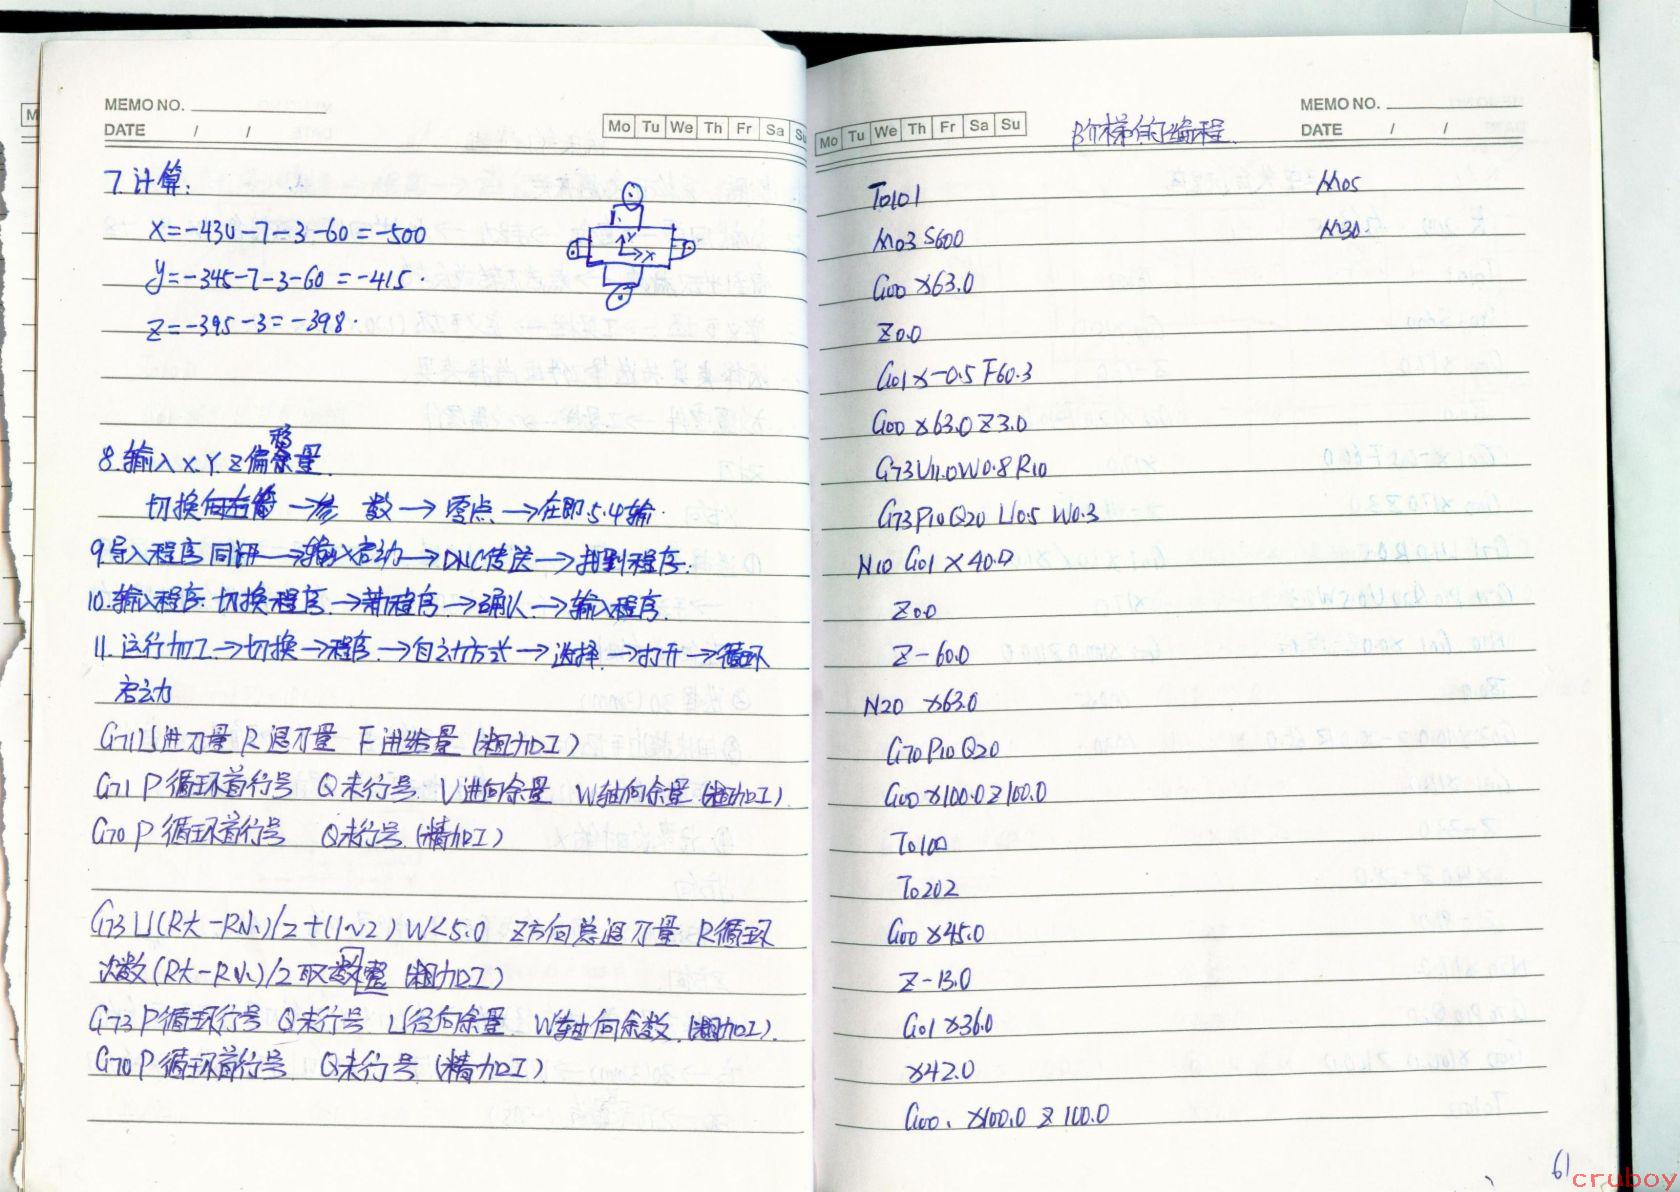 MEMO NO.
DATE / /
Mo Tu We Th Fr Sa Su
7.计算:
X=-430-7-3-60=-500
y=-345-7-3-60=-415.
Z=-395-3=-398.
8.输入X.Y Z偏移量.
切换 → 参数 → 零点 → 在即5.4输.
9.导入程序 同讲 → 输入启动 → DNC传送 → 找到程序.
10.输入程序. 切换程序 → 新程序 → 确认 → 输入程序.
11.运行加工 → 切换 → 程序 → 自动方式 → 选择 → 打开 → 循环
启动
G71U进刀量 R退刀量 F进给量(粗加工)
G71 P循环首行号 Q末行号 U进向余量 W轴向余量(粗加工).
G70 P循环首行号 Q末行号.(精加工)
G73 U(R大-R小)/2+(1~2) W<5.0 Z方向总退刀量 R循环
次数(R大-R小)/2取数整(粗加工)
G73 P循环行号 Q末行号 U径向余量 W轴向余数.(粗加工).
G70 P循环首行号 Q末行号.(精加工)
Mo Tu We Th Fr Sa Su
阶梯的编程.
MEMO NO.
DATE / /
T0101
M03 S600
G00 X63.0
Z0.0
G01 X-0.5 F60.3
G00 X63.0 Z3.0
G73 U11.0 W0.8 R10
G73 P10 Q20 U0.5 W0.3
N10 G01 X40.0
Z0.0
Z-60.0
N20 X63.0
G70 P10 Q20
G00 X100.0 Z100.0
T0100
T0202
G00 X45.0
Z-13.0
G01 X36.0
X42.0
G00. X100.0 Z100.0
M05
M30.
61
cruboy